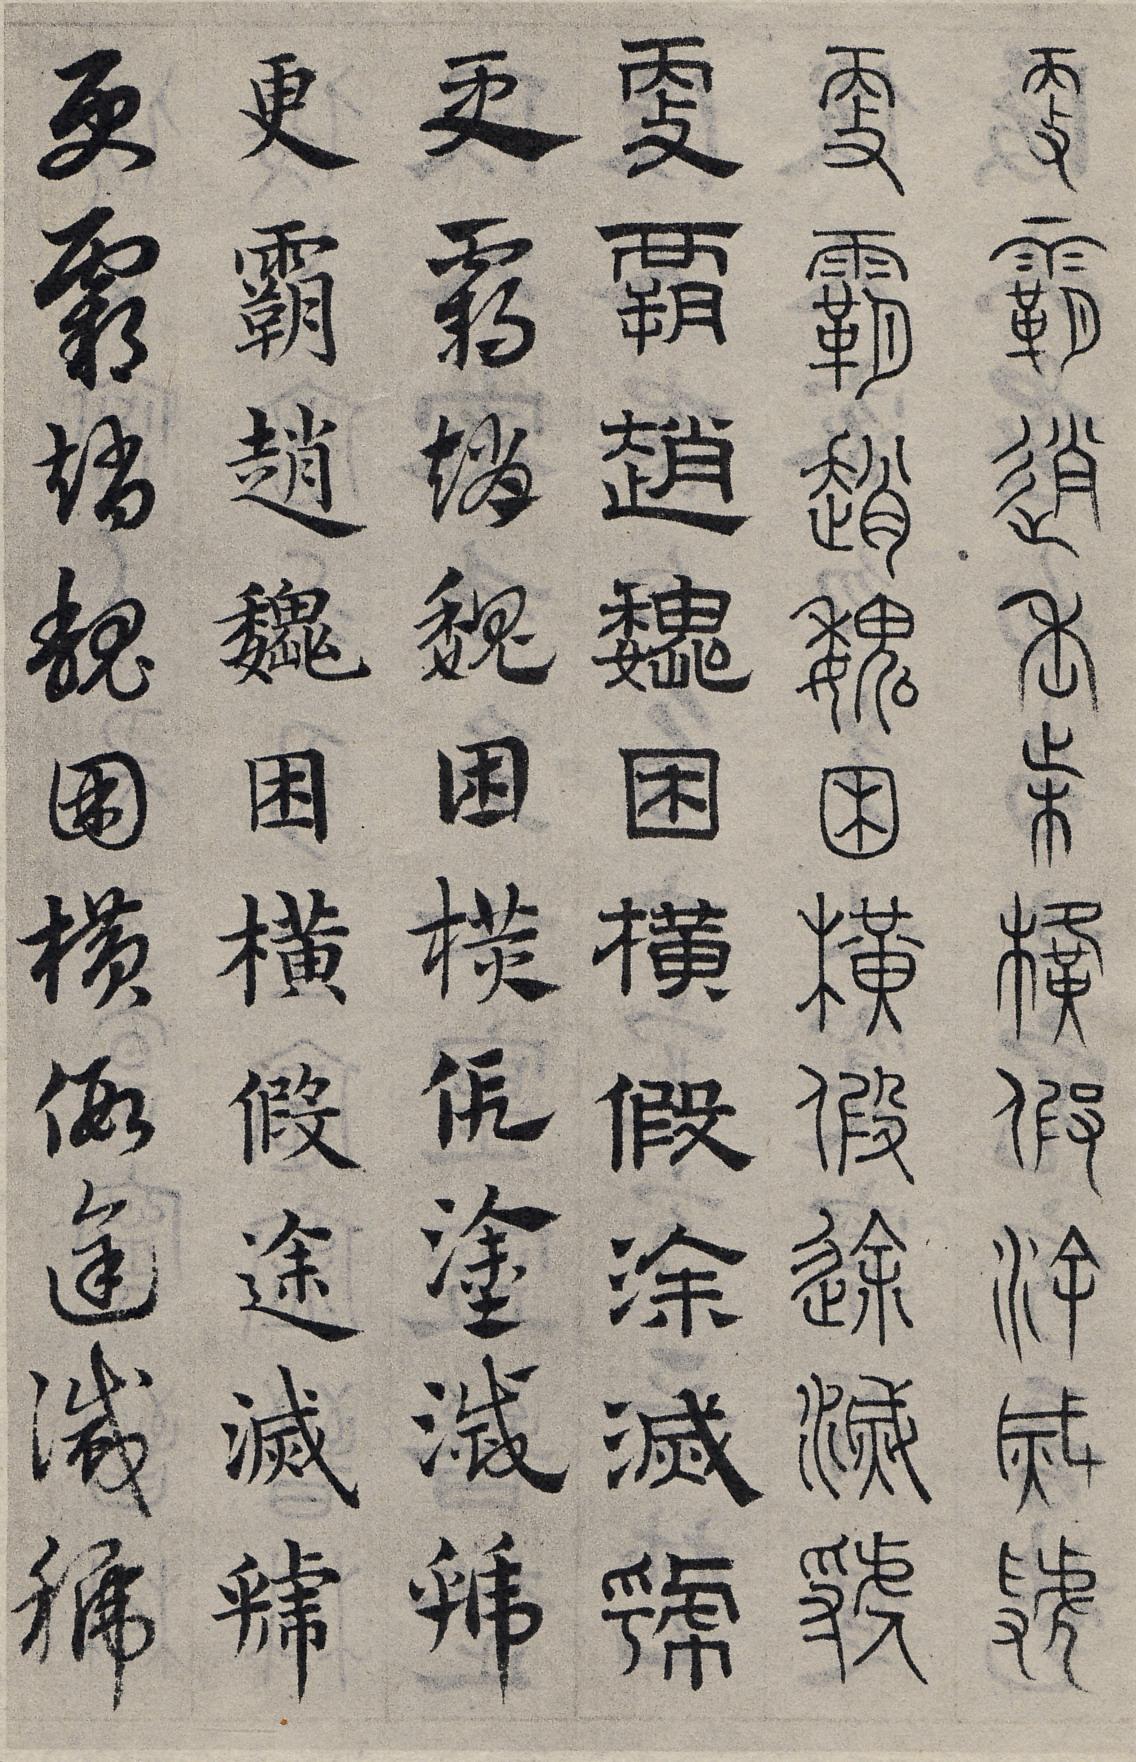 更霸趙魏困橫假途滅虢
更霸趙魏困橫假途滅虢
更霸趙魏困橫假涂滅虢
更霸趙魏困横假塗滅虢
更霸趙魏困橫假途滅虢
更霸趙魏困横假途滅虢